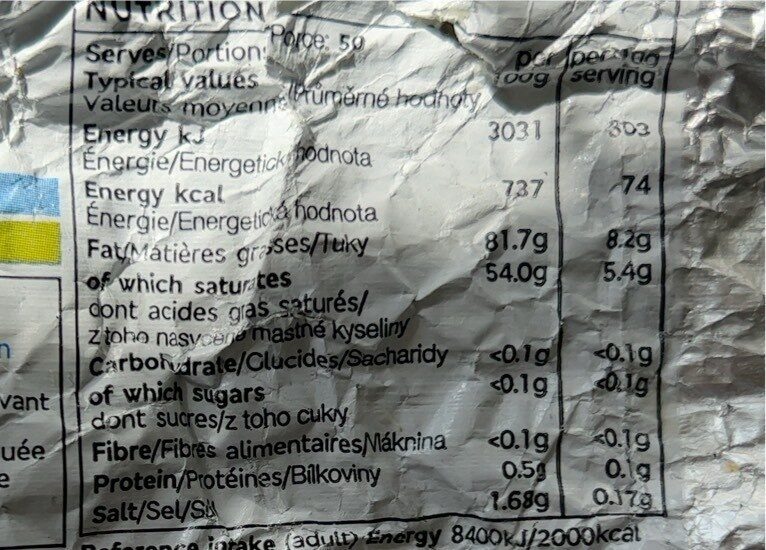 NUTRITION
Serves/Portion: Porce: 50
per per 10g
Typical values 100g serving
Valeurs moyennes/Průměrné hodnoty
Energy kJ 3031 303
Énergie/Energetická hodnota
Energy kcal 737 74
Énergie/Energetická hodnota
Fat/Matières grasses/Tuky 81.7g 8.2g
of which saturates 54.0g 5.4g
dont acides gras saturés/
z toho nasycené mastné kyseliny
Carbohydrate/Glucides/Sacharidy <0.1g <0.1g
of which sugars <0.1g <0.1g
dont sucres/z toho cukry
Fibre/Fibres alimentaires/Vláknina <0.1g <0.1g
Protein/Protéines/Bílkoviny 0.5g 0.1g
Salt/Sel/Sůl 1.68g 0.17g
Reference intake (adult) Energy 8400kJ/2000kcal
n
vant
uée
e